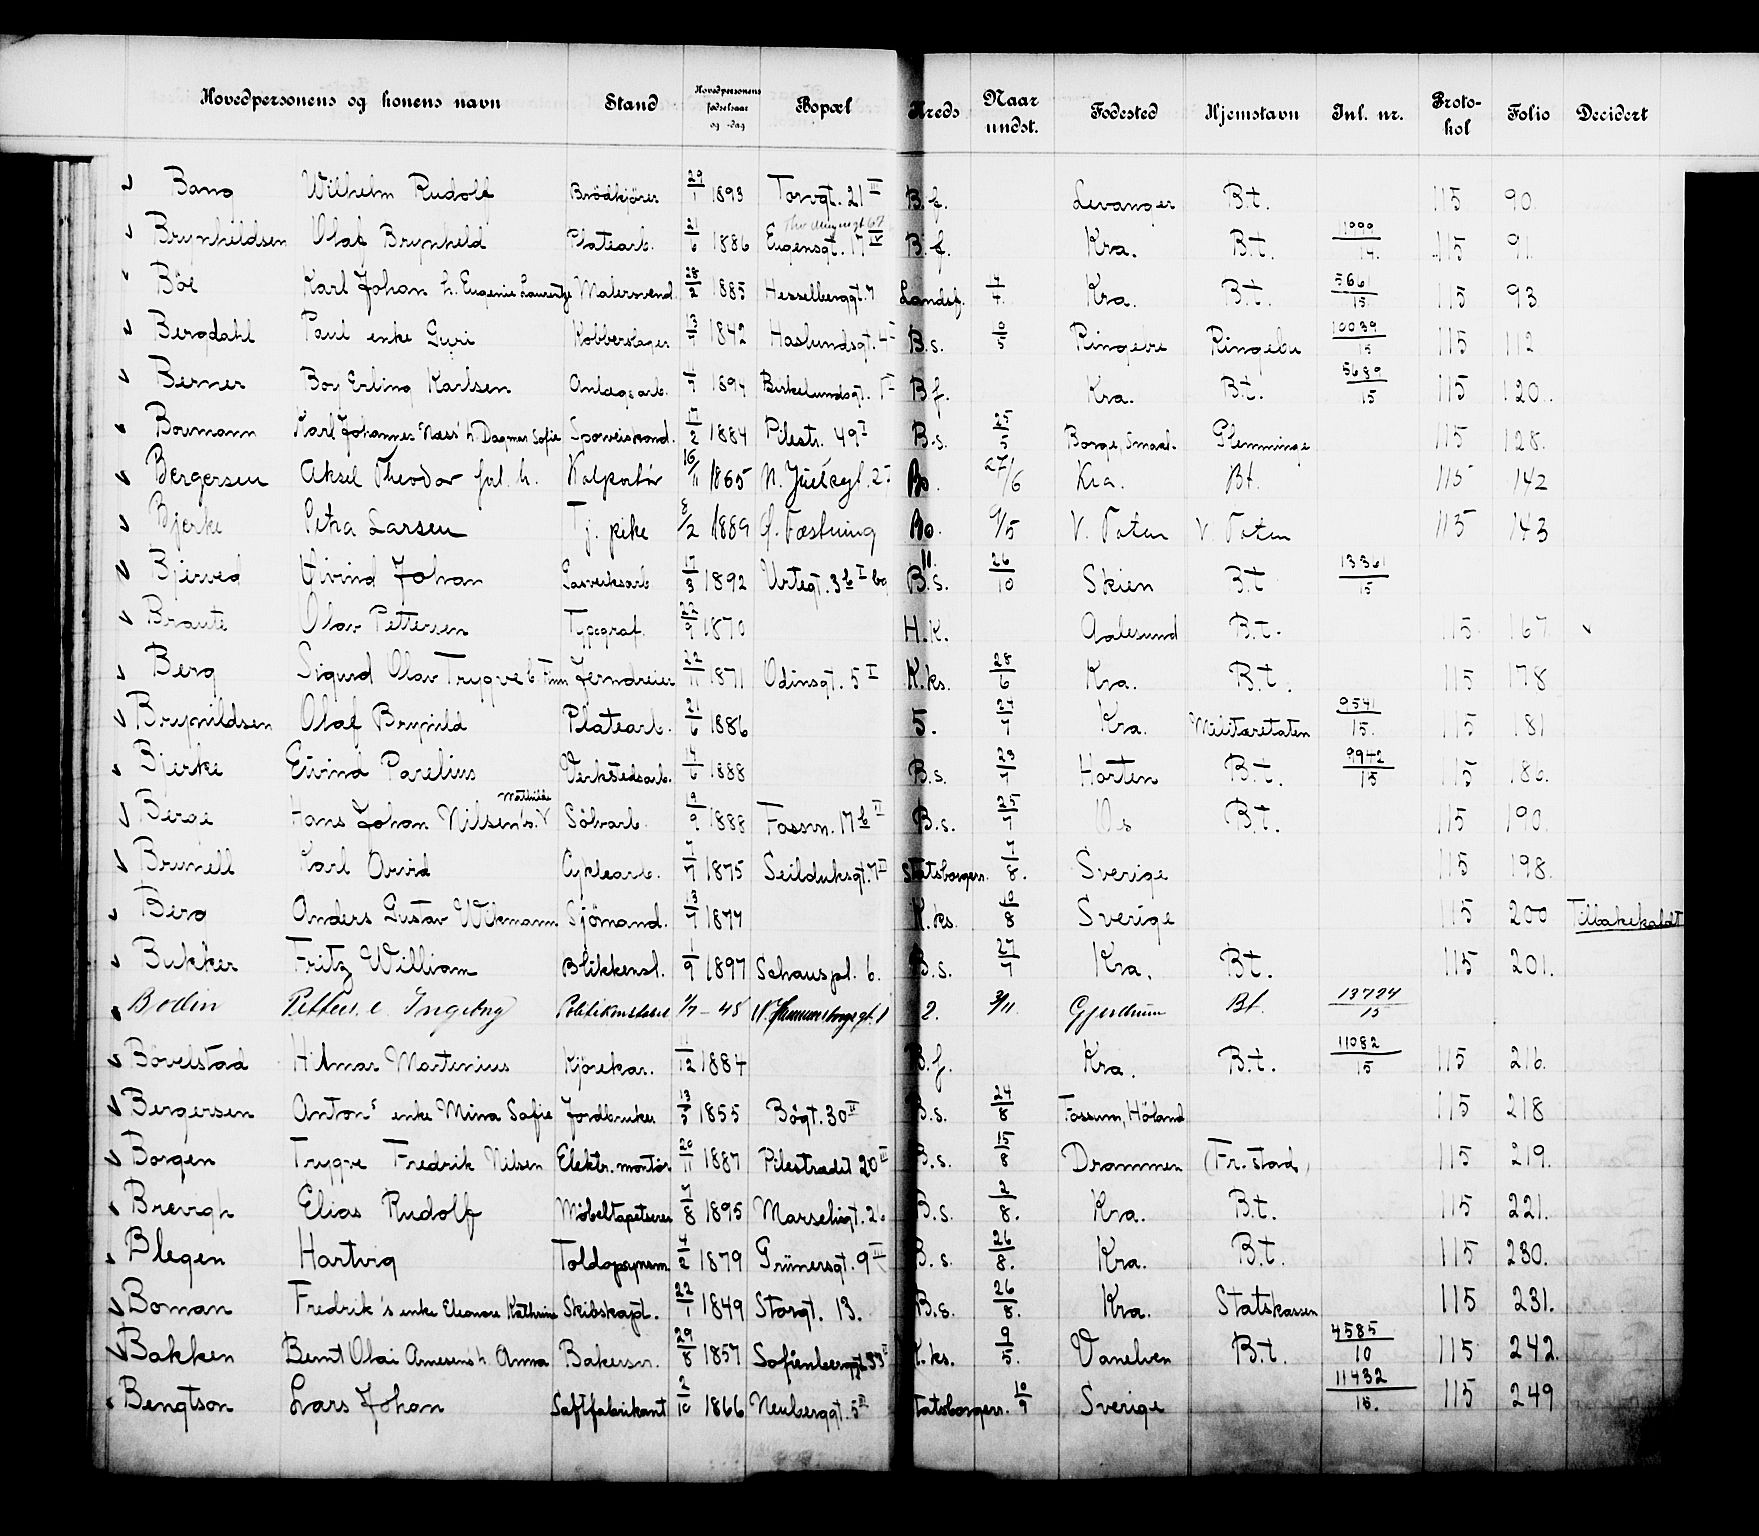 Hovedpersonens og konens navn Stand Hovedpersonens fødselsaar og -dag Bopæl Kreds Naar undst. Fødested Hjemstavn Inl. nr. Protokol Folio Decidert
Bang Wilhelm Rudolf Brödkjörer 29/1 1893 Torvgt. 21 III B.f. Levanger B.t. 115 90
Thv. Meyersgt 67
Brynheldsen Olaf Brynheld Platearb. 21/6 1886 Eugensgt. 17 IV B.f. Kra. B.t. 11999/14. 115 91.
Böe Karl Johan h. Eugenie Laurentze Malersvend. 28/2 1885 Hesselberggt. 7 Landsf. 7/7. Kra. B.t. 5661/15 115 93
Bergdahl Paul enke Guri Kobberslager 13/7 1842 Haslundsgt. 4 I B.s. 10/5 Ringebu Ringebu 10039/15 115 112
Berner Boy Erling Karlsen Anlægsarb. 1894 Birkelundsgt. 1 I B.f. Kra. B.t. 5689/15 115 120.
Boumann Karl Johannes Næss' h. Dagmar Sofie Sporveiskond. 17/2 1884 Pilestr. 49 I B.s. 25/5 Borge, Smaal. Glemminge 115 128.
Bergersen Aksel Theodor fal. h. Kolportör 16/11 1865 N. Juelsgt. 2 Bo. 27/6 Kra. Bt. 115 142
Bjerke Petra Larsen Tj. pike 8/2 1889 Bo. 9/5 V. Toten V. Toten 115 143
Bjerved Eivind Johan Gasverksarb 17/3 1892 Urtegt. 3 b I bg 11. B.s. 26/10 Skien B.t 13361/15
Braute Olav Pettersen Typograf. 22/9 1870 H.K. Aalesund B.t. 115 167
Berg Sigurd Olav Trygve b. Finn Jerndreier 22/11 1871 Odinsgt. 5 I K.ks. 28/6 Kra. B.t. 115 178
Brynildsen Olaf Brynild Platearb. 21/6 1886 5. 27/7 Kra. Militæretaten 9541/15. 115 181
Bjerke Eivind Parelius Verkstedsarb. 17/6 1888 B.s. 23/7 Horten B.t. 9942/15 115 186.
Mathilde
Berge Hans Johan Nilsen h. Sölvarb. 19/9 1888 Fossvn. 17 b II B.s. 25/7 Os B.t. 115 190.
Brunell Karl Arvid Cyklearb. 7/7 1875 Seilduksgt. 7 II Statsborgerr. 7/8. Sverige 115 198.
Berg Anders Gustav Wikmann Sjömand. 13/7 1877 K.ks. 10/8 Sverige 115 200 Tilbakekaldt
Bukker Fritz William Blikkensl. 1/9 1897 Schauspl. 6. B.s. 27/7 Kra. B.t. 115 201.
Bodin Petter e. Ingeborg Politikonstabel 1/7 - 45 N. Hammersborgsgt. 1 2. 3/11 Gjerdrum Bt. 13724/15
Bövelstad Hilmar Martenius Kjörekar. 1/12 1884 B.f. Kra. B.t. 11082/15 115 216.
Bergersen Anton's enke Mina Safie Jordbruker 13/5 1855 Bögt. 30 II B.s. 24/8 Fossum, Höland 115 218
Borgen Trygve Fredrik Nilsen Elektr. montör 20/11 1887 Pilestrædet 20 III B.s. 15/8 Drammen (Fr.stad) 115 219.
Brevigh Elias Rudolf Möbeltapetserer 7/8 1895 Marseligt. 26 B.s. 2/8. Kra. B.t. 115 221.
Blegen Hartvig Toldopsynsm. 4/2 1879 Grünersgt. 9 III B.s. 26/8. Kra. B.t. 115 230.
Boman Fredrik's enke Eleonore Kathrine Skibskapt. 22/1 1849 Storgt. 13. B.s. 26/8. Kra. Statskassen 115 231.
Bakken Bernt Olai Arnesens h. Anna Bakersv. 29/8 1857 Sofienberggt. 33 K.ks. 9/5. Vanelven B.t. 4585/10 115 242.
Bengtson Lars Johan Saftfabrikant 2/10 1866 Neuberggt. 5 II Statsborgerr. 10/9 Sverige 11432/15. 115 249